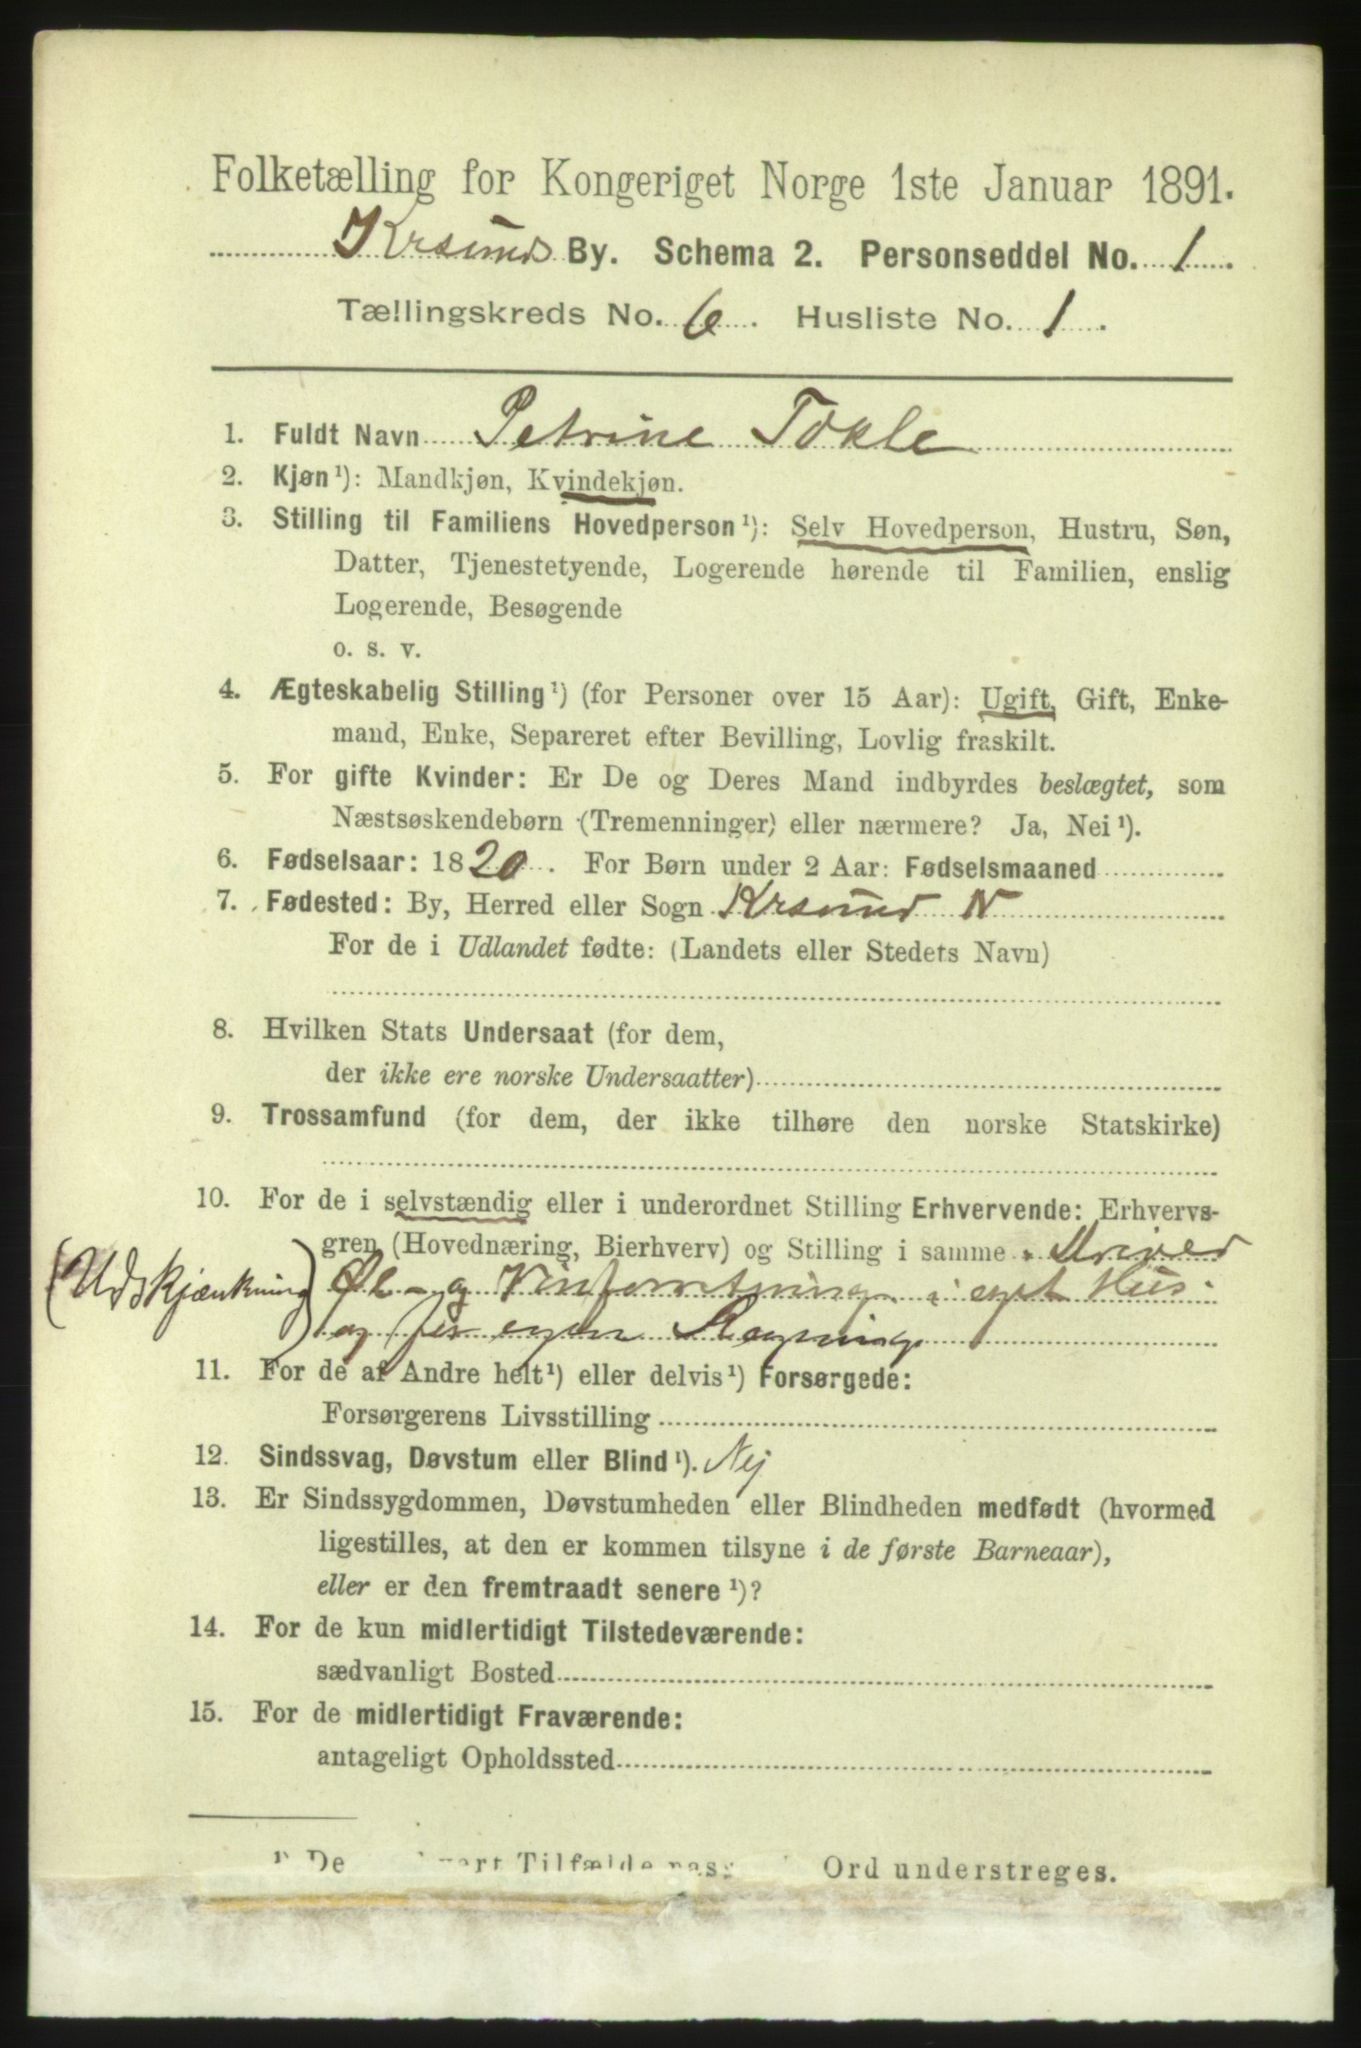 Folketælling for Kongeriget Norge 1ste Januar 1891.
Krsund By. Schema 2. Personseddel No. 1
Tællingskreds No. 6. Husliste No. 1.
1. Fuldt Navn Petrine Tokle
2. Kjøn ¹): Mandkjøn, Kvindekjøn.
3. Stilling til Familiens Hovedperson ¹): Selv Hovedperson, Hustru, Søn,
Datter, Tjenestetyende, Logerende hørende til Familien, enslig
Logerende, Besøgende
o. s. v.
4. Ægteskabelig Stilling ¹) (for Personer over 15 Aar): Ugift, Gift, Enke-
mand, Enke, Separeret efter Bevilling, Lovlig fraskilt.
5. For gifte Kvinder: Er De og Deres Mand indbyrdes beslægtet, som
Næstsøskendebørn (Tremenninger) eller nærmere? Ja, Nei ¹).
6. Fødselsaar: 1820. For Børn under 2 Aar: Fødselsmaaned
7. Fødested: By, Herred eller Sogn Krsund N
For de i Udlandet fødte: (Landets eller Stedets Navn)
8. Hvilken Stats Undersaat (for dem,
der ikke ere norske Undersaatter)
9. Trossamfund (for dem, der ikke tilhøre den norske Statskirke)
10. For de i selvstændig eller i underordnet Stilling Erhvervende: Erhvervs-
gren (Hovednæring, Bierhverv) og Stilling i samme. Driver
(Udskjænkning) Øl- og Vinforretning i eget Hus
og for egen Regning
11. For de af Andre helt ¹) eller delvis ¹) Forsørgede:
Forsørgerens Livsstilling
12. Sindssvag, Døvstum eller Blind ¹). Nej
13. Er Sindssygdommen, Døvstumheden eller Blindheden medfødt (hvormed
ligestilles, at den er kommen tilsyne i de første Barneaar),
eller er den fremtraadt senere ¹)?
14. For de kun midlertidigt Tilstedeværende:
sædvanligt Bosted
15. For de midlertidigt Fraværende:
antageligt Opholdssted
¹) De Tilfælde Ord understreges.